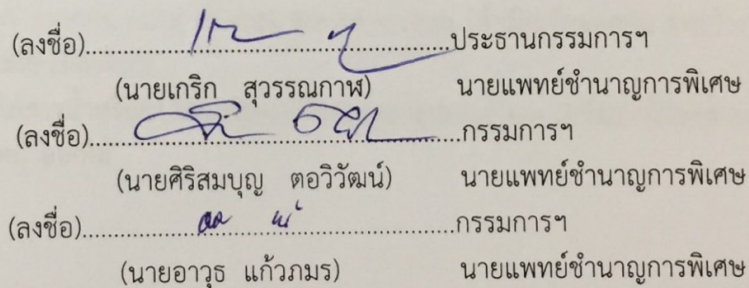 (ลงชื่อ)..........................................................ประธานกรรมการฯ
(นายเกริก สุวรรณกาฬ) นายแพทย์ชำนาญการพิเศษ
(ลงชื่อ)..........................................................กรรมการฯ
(นายศิริสมบุญ ตอวิวัฒน์) นายแพทย์ชำนาญการพิเศษ
(ลงชื่อ)..........................................................กรรมการฯ
(นายอาวุธ แก้วภมร) นายแพทย์ชำนาญการพิเศษ